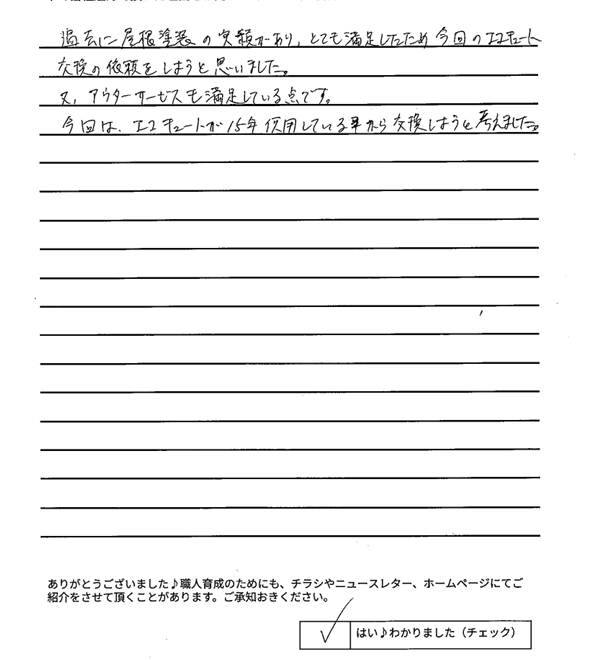 過去に屋根塗装の実績があり、とても満足したため今回のエコキュート
交換の依頼をしようと思いました。
又、アウターサービスも満足している点です。
今回は、エコキュートが15年使用している事から交換しようと考えました。
ありがとうございました♪職人育成のためにも、チラシやニュースレター、ホームページにてご
紹介をさせて頂くことがあります。ご承知おきください。
はい♪わかりました（チェック）